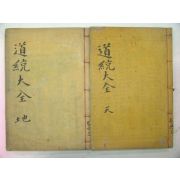 道統大全 天
道統大全 地